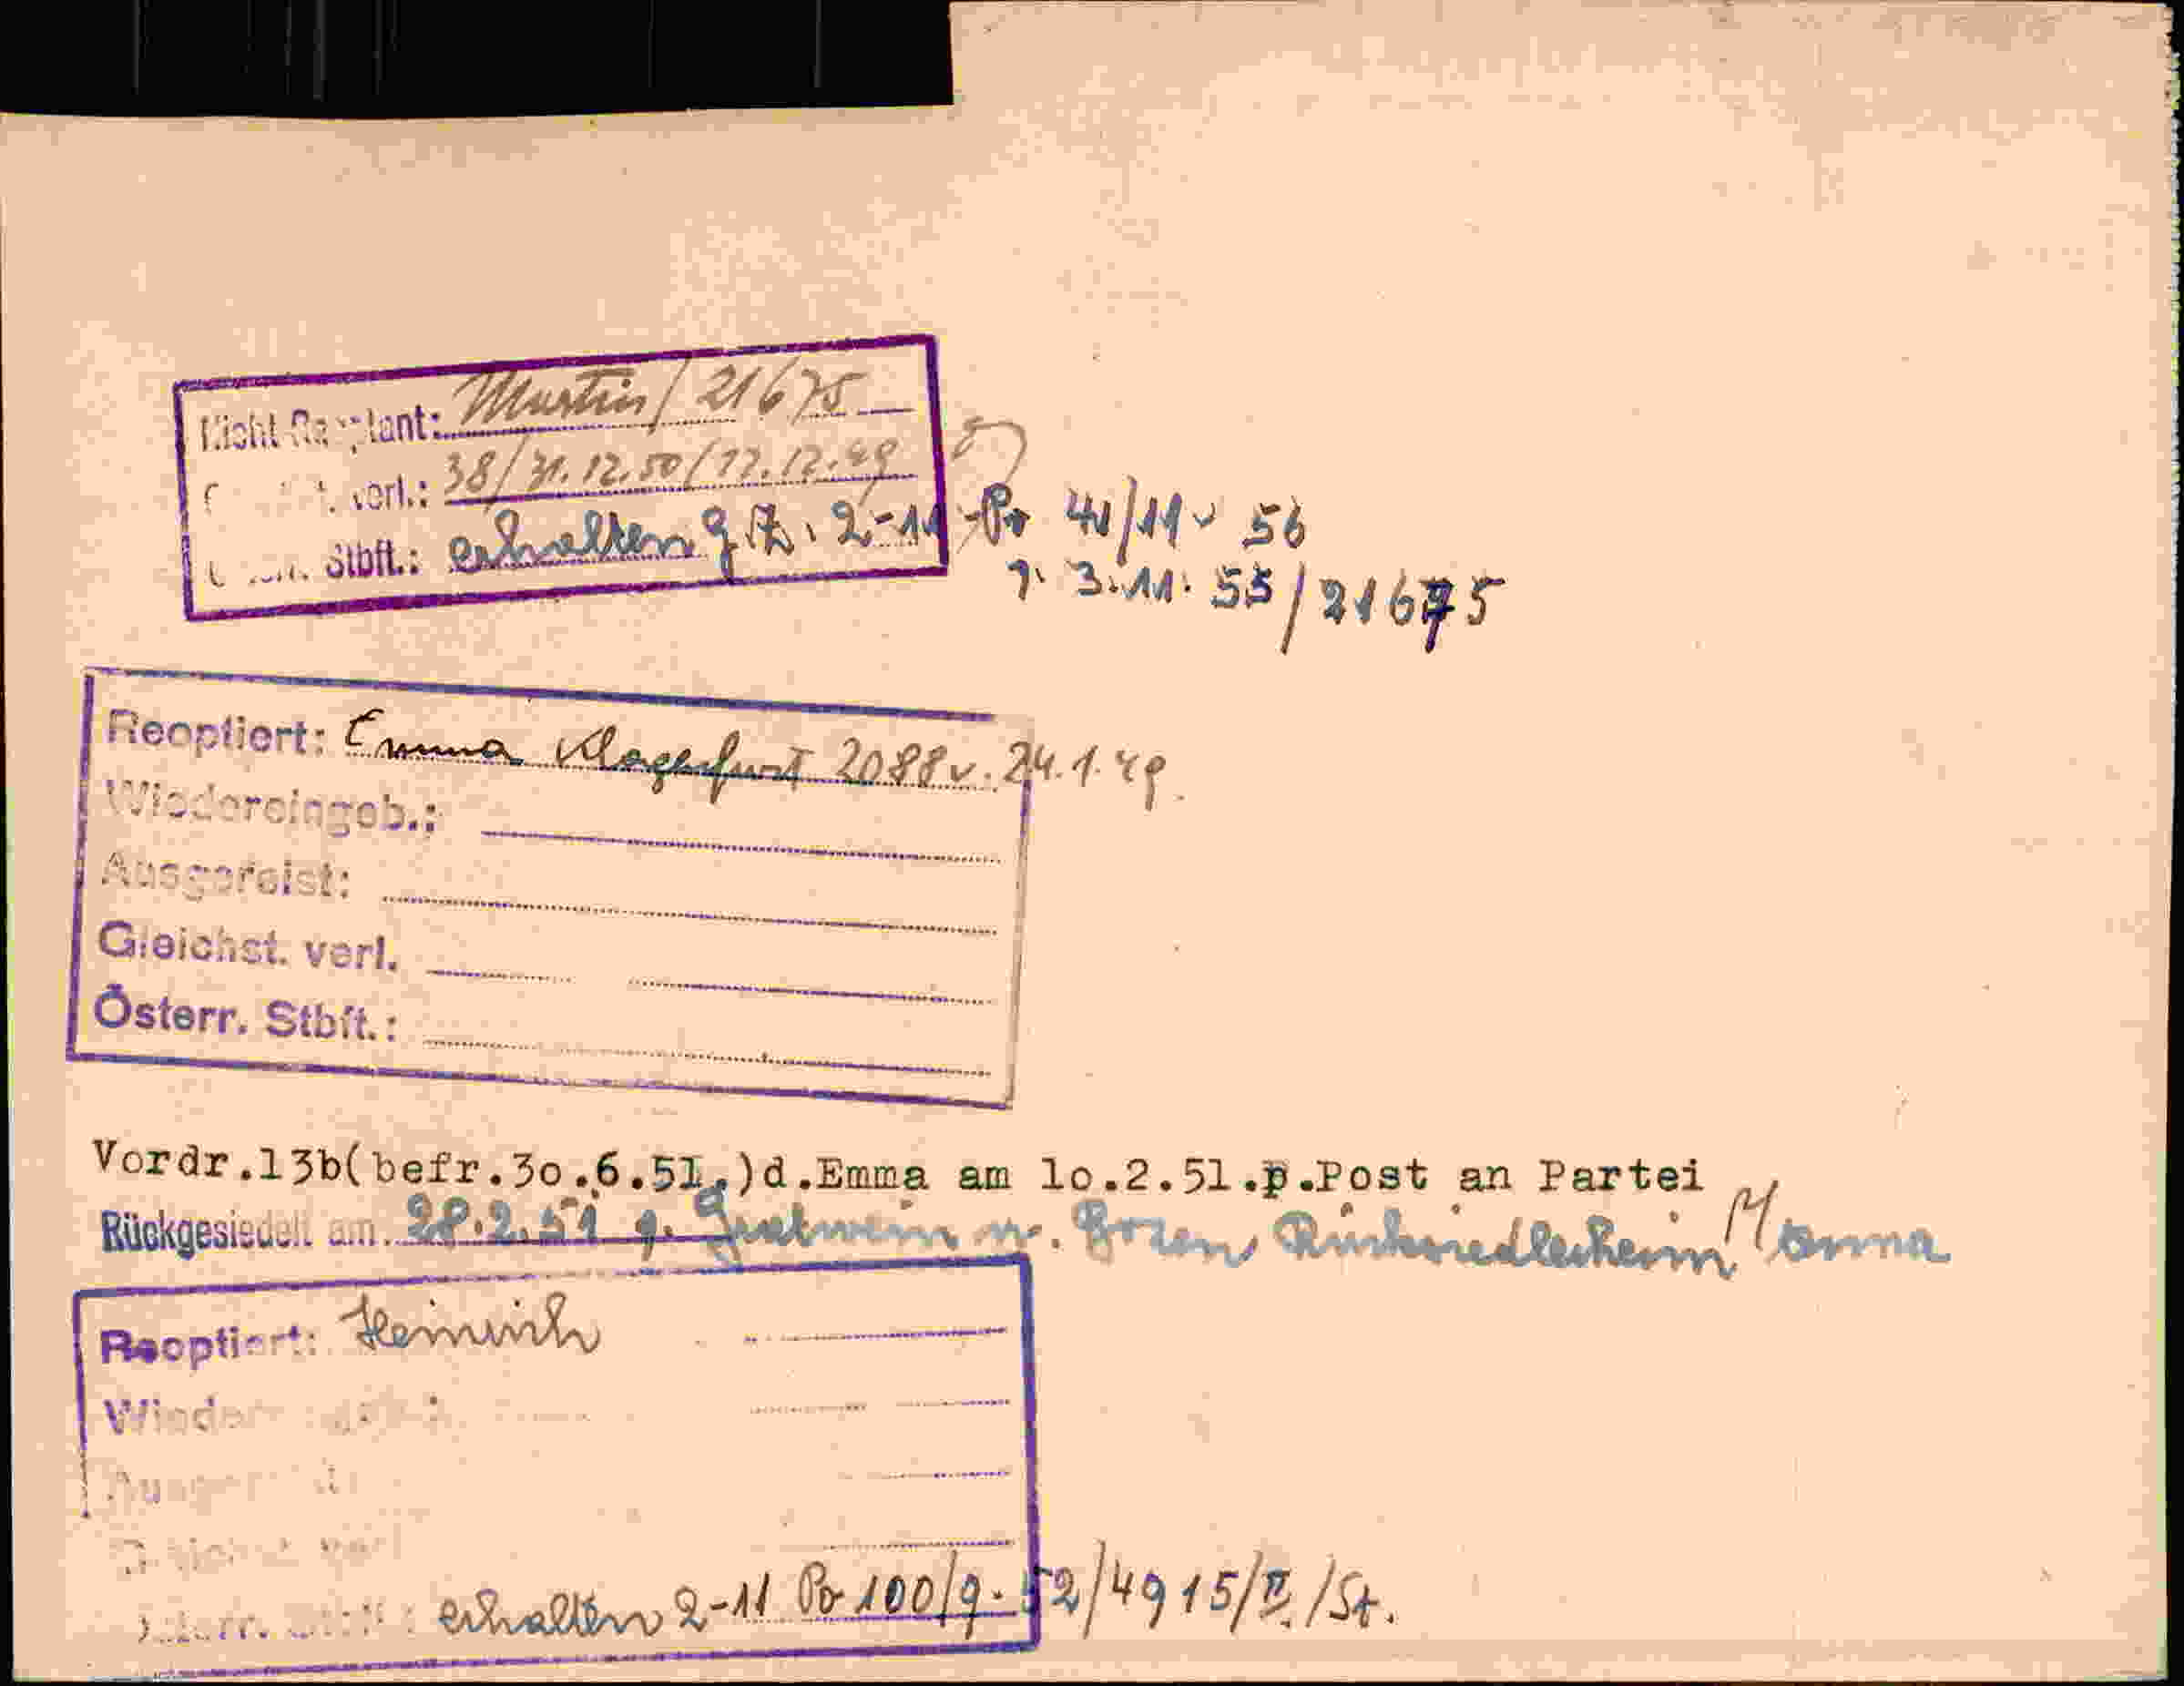 Nicht-Reoptant: Martin / 21675
verl.: 38/31.12.50/17.12.49
Stbft.: erhalten g.Z. 2-11-Po 41/11 v 56
v. 3.11.55/21675
Reoptiert: Emma Klagenfurt 2088 v. 24.1.49.
Wiedereingeb.:
Ausgereist:
Gleichst. verl.
Österr. Stbft.:
Vordr.13b(befr.3o.6.51.)d.Emma am 1o.2.51.p.Post an Partei
Rückgesiedelt am 28.2.51 g. Gratwein n. Bozen Rücksiedlerheim / Emma
Reoptiert: Heinrich
erhalten 2-11 Po 100/g. 52/4915/II/St.